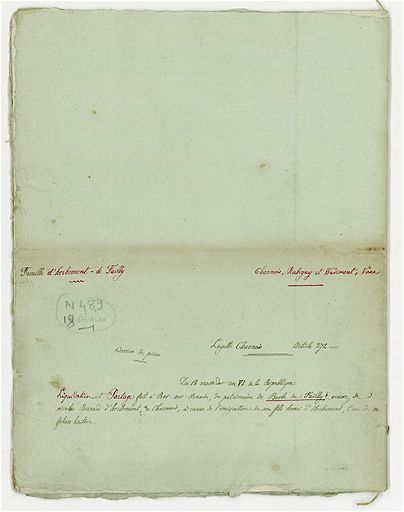 famille d'herbemont - de Failly
Charmois, Rubigny et Wadimont, Vaux
N 489
18
Dossier de pièces
Layette Charmois Article 272
Du 18 messidor an VI de la République
Liquidation et Partage fait à Bar sur-Ornain, du patrimoine de Barbe de Failly, veuve de
nicolas Bernard d'herbemont, de Charmois, à cause de l'émigration de son fils henri d'herbemont, l'un de ses
futurs héritiers.